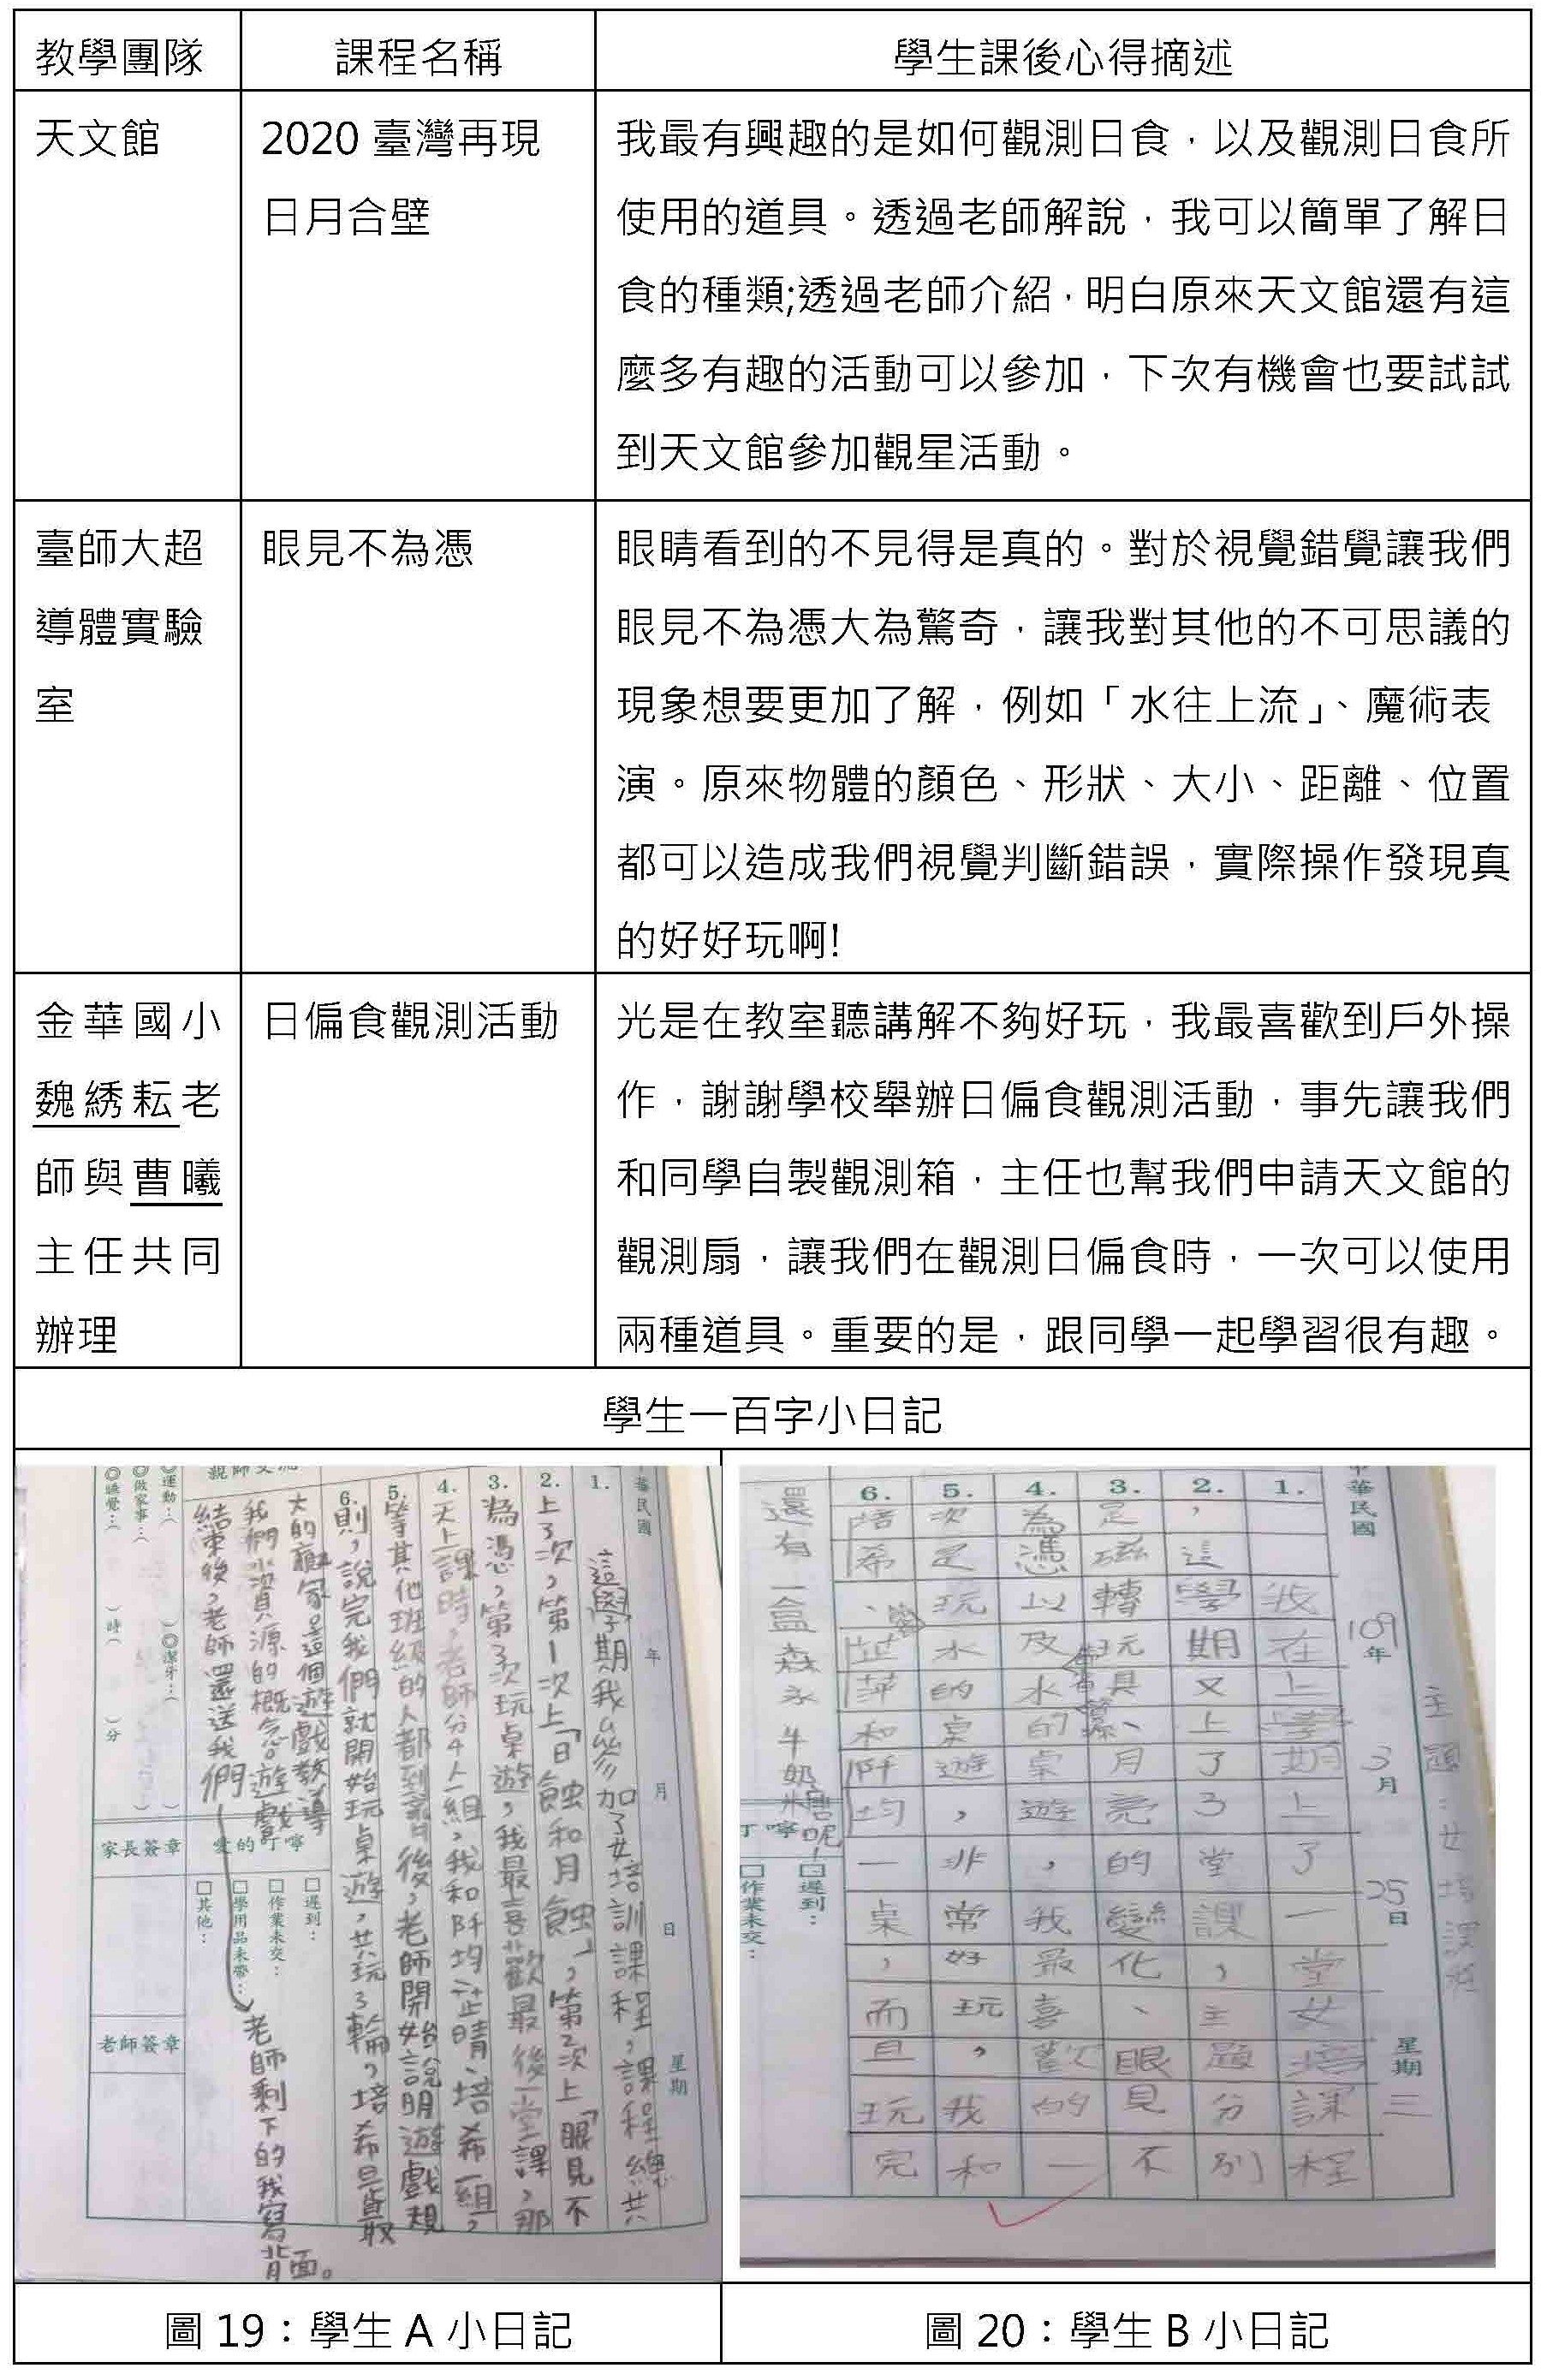 教學團隊
課程名稱
學生課後心得摘述
天文館
2020 臺灣再現
日月合壁
我最有興趣的是如何觀測日食，以及觀測日食所
使用的道具。透過老師解說，我可以簡單了解日
食的種類;透過老師介紹，明白原來天文館還有這
麼多有趣的活動可以參加，下次有機會也要試試
到天文館參加觀星活動。
臺師大超
導體實驗
室
眼見不為憑
眼睛看到的不見得是真的。對於視覺錯覺讓我們
眼見不為憑大為驚奇，讓我對其他的不可思議的
現象想要更加了解，例如「水往上流」、魔術表
演。原來物體的顏色、形狀、大小、距離、位置
都可以造成我們視覺判斷錯誤，實際操作發現真
的好好玩啊!
金華國小
魏綉耘老
師與曹曦
主任共同
辦理
日偏食觀測活動
光是在教室聽講解不夠好玩，我最喜歡到戶外操
作，謝謝學校舉辦日偏食觀測活動，事先讓我們
和同學自製觀測箱，主任也幫我們申請天文館的
觀測扇，讓我們在觀測日偏食時，一次可以使用
兩種道具。重要的是，跟同學一起學習很有趣。
學生一百字小日記
華民國 年 月 日 星期
1. 這學期我參加了女培訓課程，課程總共
2. 上了3次，第1次上「日蝕和月蝕」，第2次上「眼見不
3. 為憑，第3次玩桌遊，我最喜歡最後一堂課，那
4. 天上課時，老師分4人一組，我和阡均、芷晴、培希一組，
5. 等其他班級的人都到齊後，老師開始說明遊戲規
6. 則，說完我們就開始玩桌遊，共玩了3輪，培希是最
大的贏家。這個遊戲教導
我們水資源的概念。遊戲
結束後，老師還送我們
老師剩
下的我寫
背面。
◎運動：（
◎做家事：（
◎睡覺：（
）時（
）分
◎潔牙：（
愛的叮嚀
家長簽章
老師簽章
□遲到：
□作業未交：
□學用品未帶：
□其他：
中華民國 109年 3月 25日 星期三
主題：女培課程
1. 我在上學期上了一堂女培課程
2. ，這學期又上了3堂課，主題分別
3. 是磁轉玩具、月亮的變化、眼見不
4. 為憑以及水的桌遊，我最喜歡的一
5. 次是玩水的桌遊，非常好玩，我和
6. 培希、芷萍和阡均一桌，而且玩完
還有一盒森永牛奶糖呢！
叮嚀
□遲到：
□作業未交：
圖 19：學生 A 小日記
圖 20：學生 B 小日記